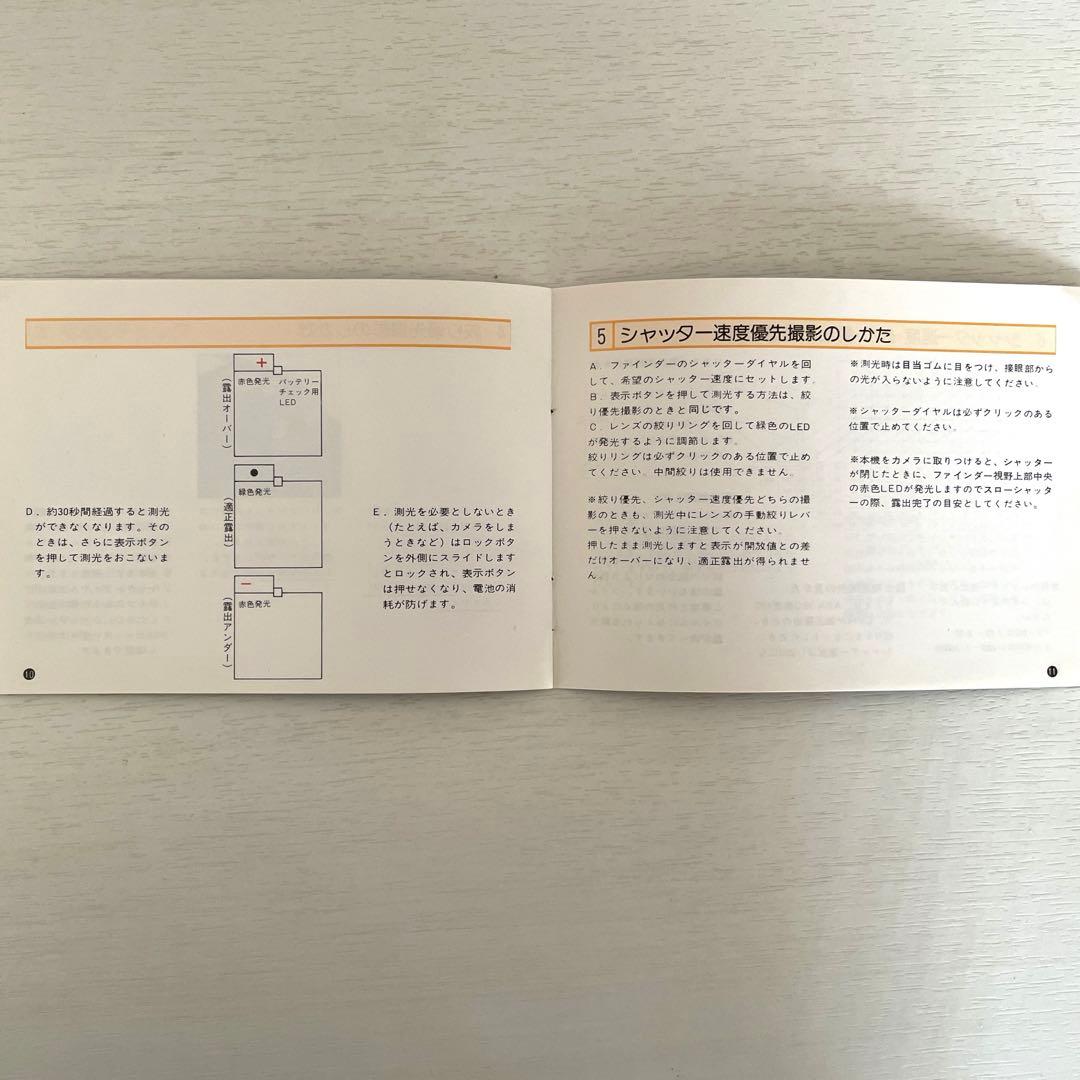 D．約30秒間経過すると測光
ができなくなります。その
ときは、さらに表示ボタン
を押して測光をおこないま
す。
＋
赤色発光
バッテリー
チェック用
LED
（露出オーバー）
●
緑色発光
（適正露出）
－
赤色発光
（露出アンダー）
E．測光を必要としないとき
（たとえば、カメラをしま
うときなど）はロックボタ
ンを外側にスライドします
とロックされ、表示ボタン
は押せなくなり、電池の消
耗が防げます。
10
5 シャッター速度優先撮影のしかた
A．ファインダーのシャッターダイヤルを回
して、希望のシャッター速度にセットします。
B．表示ボタンを押して測光する方法は、絞
り優先撮影のときと同じです。
C．レンズの絞りリングを回して緑色のLED
が発光するように調節します。
絞りリングは必ずクリックのある位置で止め
てください。中間絞りは使用できません。
※絞り優先、シャッター速度優先どちらの撮
影のときも、測光中にレンズの手動絞りレバ
ーを押さないように注意してください。
押したまま測光しますと表示が開放値との差
だけオーバーになり、適正露出が得られませ
ん。
※測光時は目当ゴムに目をつけ、接眼部から
の光が入らないように注意してください。
※シャッターダイヤルは必ずクリックのある
位置で止めてください。
※本機をカメラに取りつけると、シャッター
が閉じたときに、ファインダー視野上部中央
の赤色LEDが発光しますのでスローシャッタ
ーの際、露出完了の目安としてください。
11